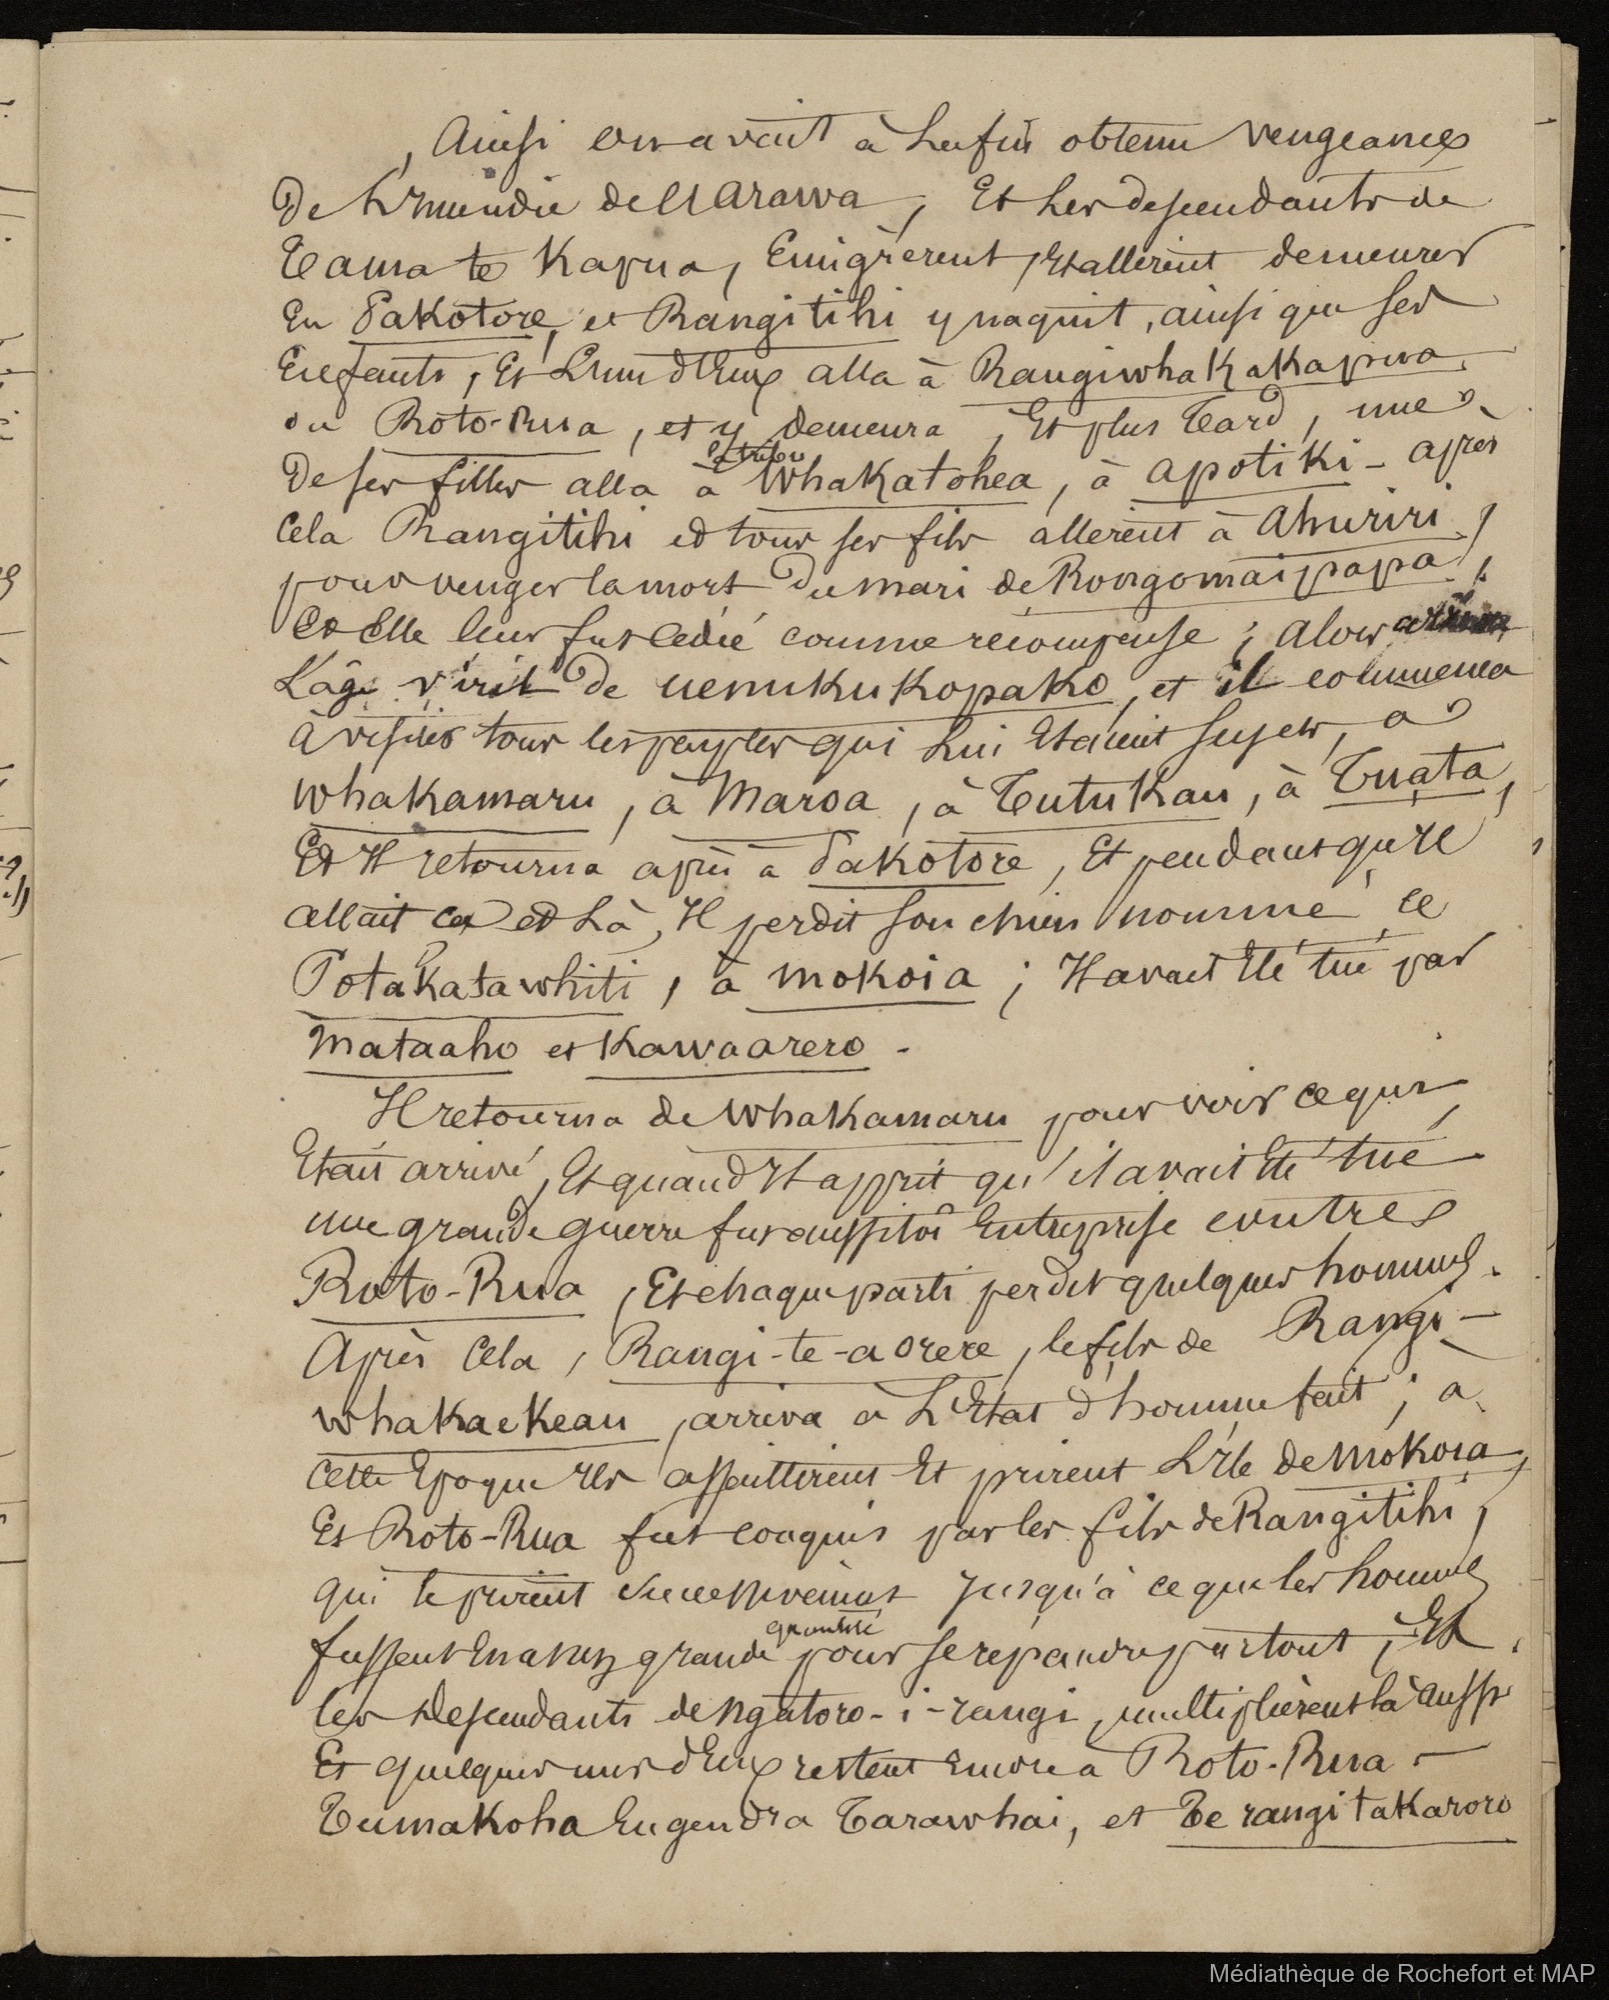 , Ainsi on avait à la fin obtenu vengeance
De L'Incendie de l'Arawa, Et les descendants de
Tama te Kapua, Emigrèrent, Et allèrent demeurer
En Pakotore, et Rangitihi y naquit, ainsi que ses
Enfants, Et L'un d'Eux alla à Rangiwhakakapua
ou Roto-Rua, et y demeura, Et plus Tard, une
De ses filles alla à la tribu Whakatohea, à apotiki - après
Cela Rangitihi et tous ses fils allèrent à Ahuriri,
pour venger la mort Du mari de Rongomaipapa,
Et Elle leur fut Cédée comme récompense ; alors
L'âge viril De uenukukopako, et il commença
à visiter tous les peuples qui Lui Etaient sujets, à
Whakamaru, à Maroa, à Tutukau, à Tuata,
Et Il retourna après à Pakotore, Et pendant qu'Il
allait ça et Là, Il perdit son chien nommé, ce
Potakatawhiti, à Mokoia ; Il avait Eté tué par
Mataaho et Kawaarero -
Il retourna de Whakamaru pour voir ce qui
Etait arrivé, Et quand Il apprit qu'il avait Eté tué
une grande guerre fut aussitôt Entreprise contre
Roto-Rua, Et chaque parti perdit quelques hommes.
Après Cela, Rangi-te-aorere, le fils de Rangi-
whakaekeau, arriva à L'Etat d'homme fait ; a
cette Epoque Ils assaillirent Et prirent L'Ile de Mokoia,
Et Roto-Rua fut conquis par les fils de Rangitihi,
qui le prirent successivement jusqu'à ce que les hommes
fussent En assez grande quantité pour se répandre partout, Et
les Descendants de Ngatoro-i-rangi, multiplièrent là aussi
Et quelques uns d'Eux restent encore à Roto-Rua -
Tumakoha Engendra Tarawhai, et Te rangitakaroro
Médiathèque de Rochefort et MAP